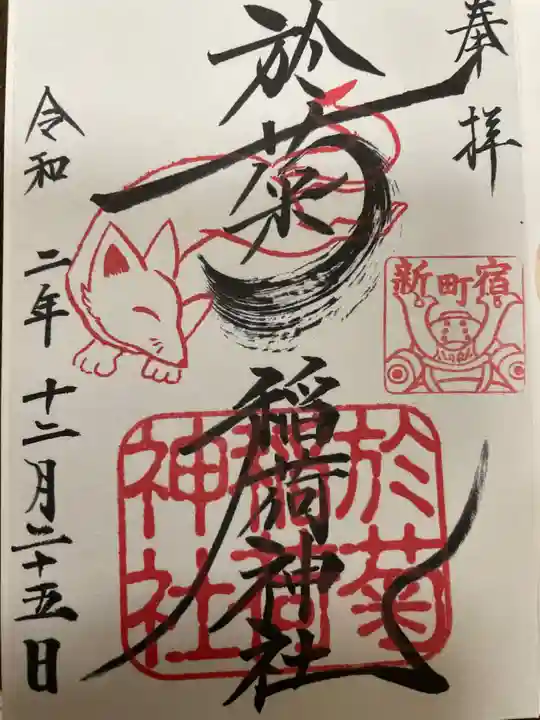 奉拝
新町宿
於菊
稲荷神社
於菊
稲荷
神社
令和 二年 十二月二十五日